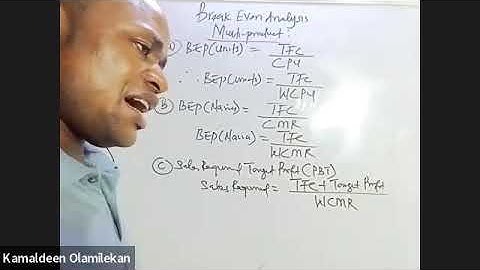 Break Even Analysis
Multi-product:
A) BEP(Units) = TFC
CPU
∴ BEP(units) = TFC
WCPU
B) BEP(Naira) = TFC
CMR
BEP(Naira) = TFC
WCMR
C) Sales Required Target Profit (PBT)
Sales Required = TFC + Target Profit
WCMR
Kamaldeen Olamilekan